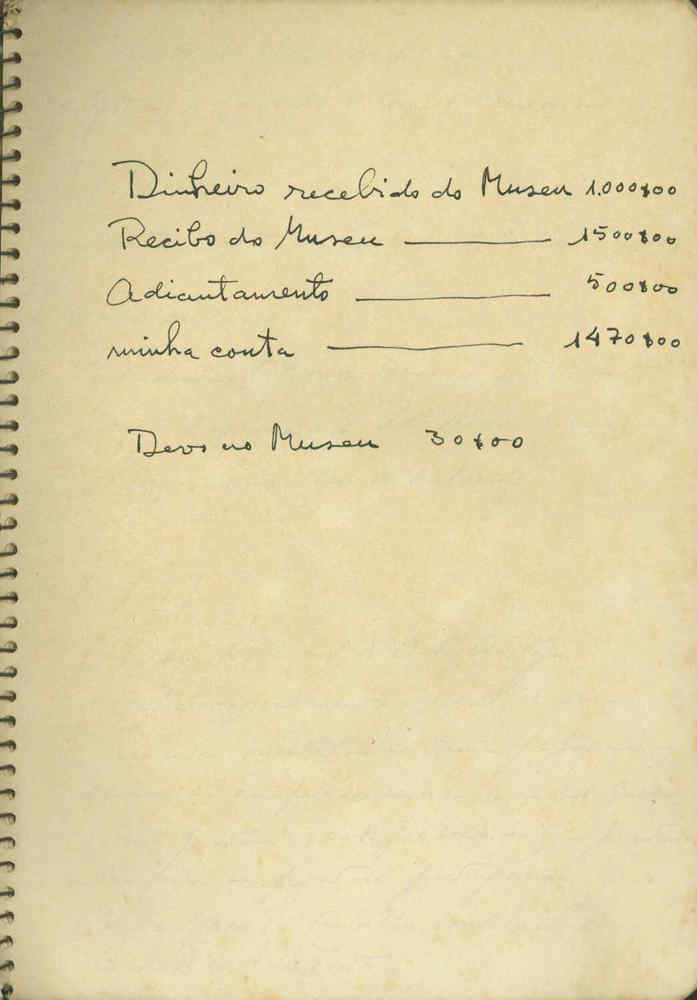 Dinheiro recebido do Museu 1.000$00
Recibo do Museu — 1500$00
Adiantamento — 500$00
minha conta — 1470$00
Devo ao Museu 30$00